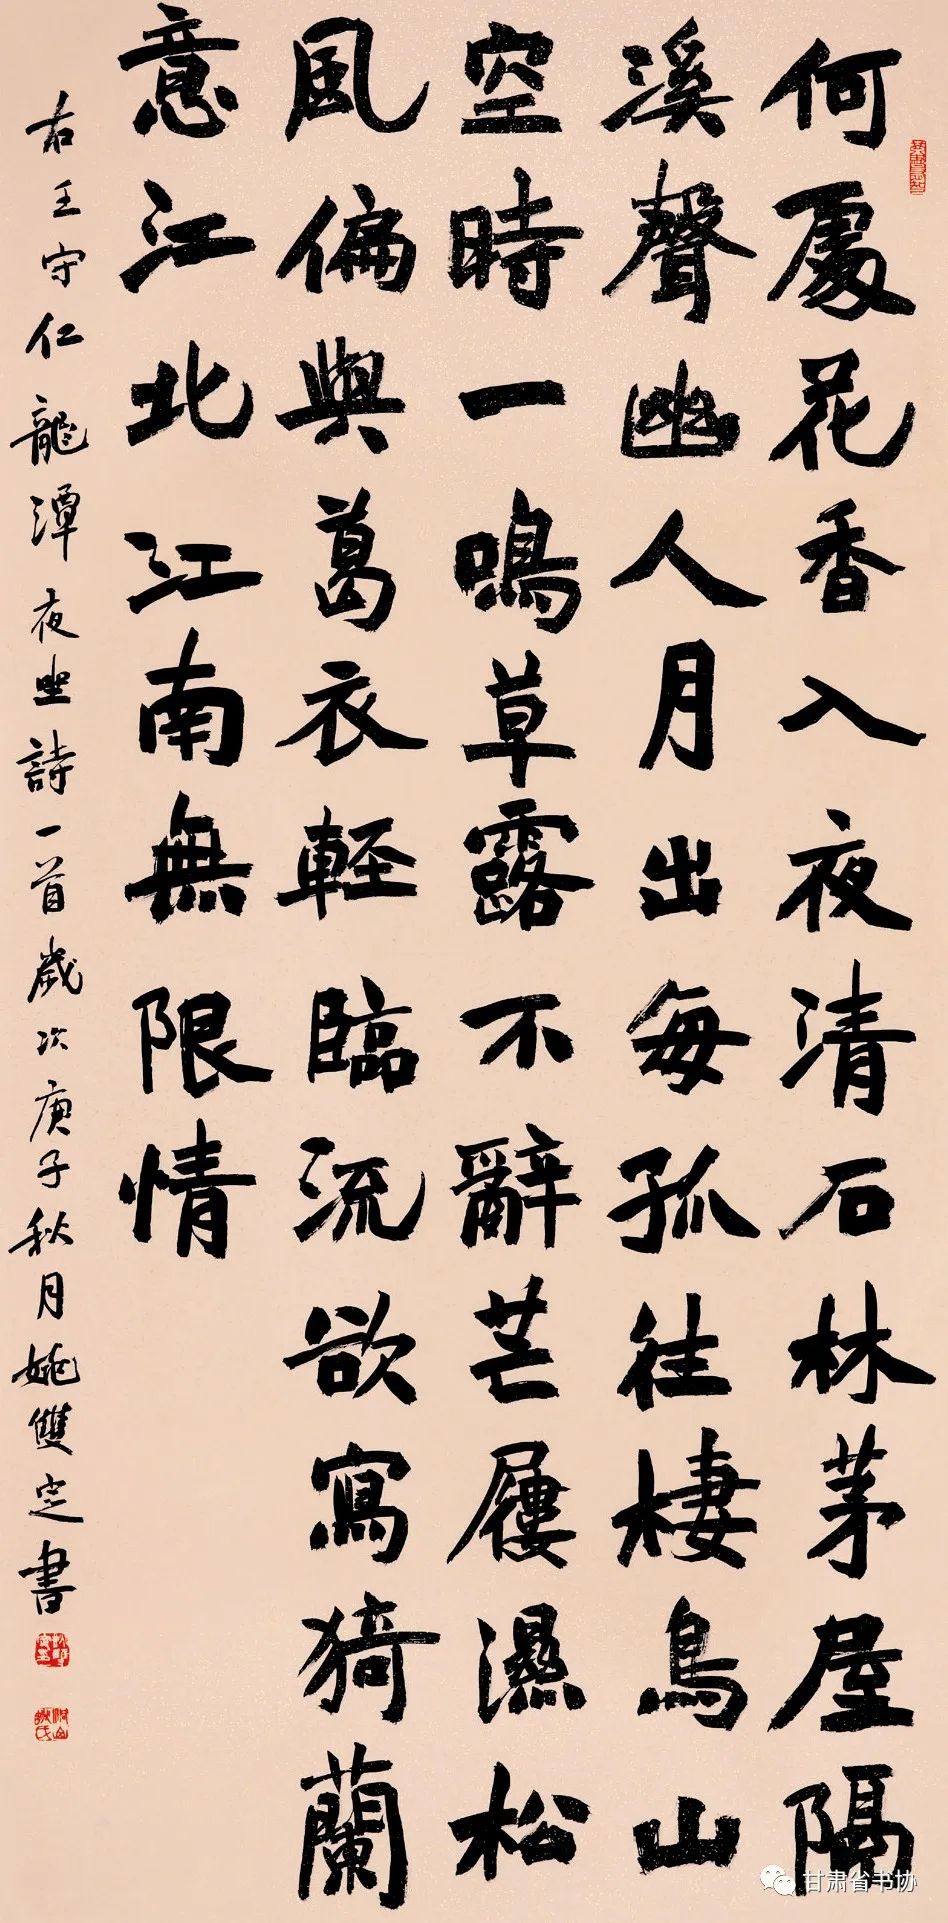 何處花香入夜清石林茅屋隔
溪聲幽人月出每孤往棲鳥山
空時一鳴草露不辭芒屨濕松
風偏與葛衣輕臨流欲寫猗蘭
意江北江南無限情
右王守仁龍潭夜坐詩一首歲次庚子秋月姚雙定書
甘肃省书协